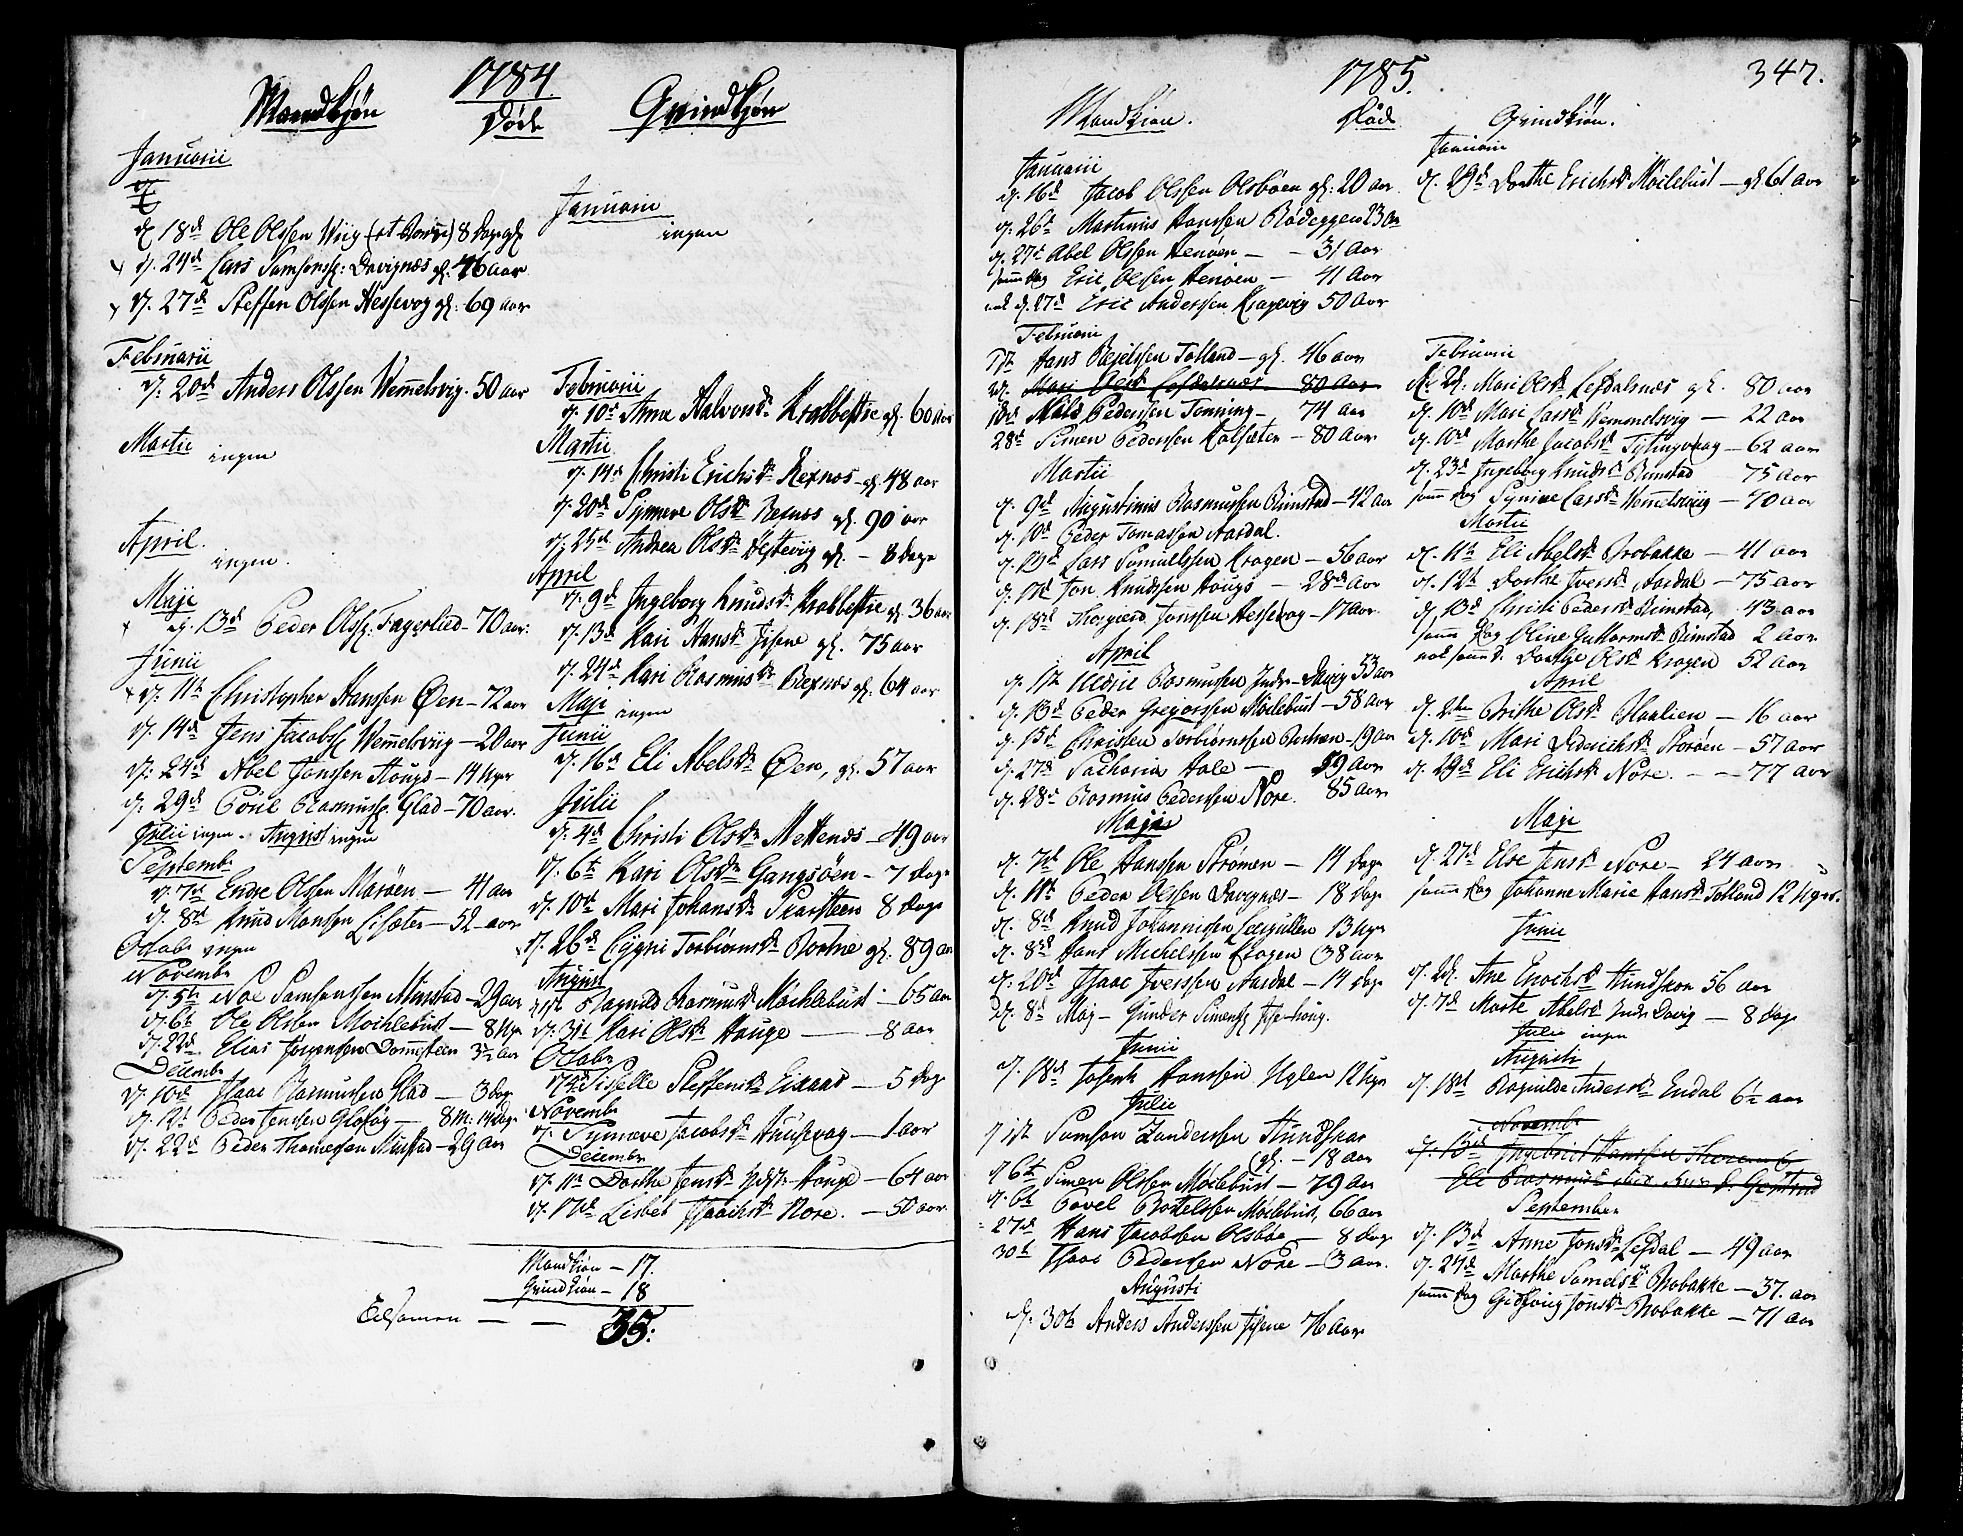 1784
Mandkjøn
Døde
Qvindkjøn
Januarii
d. 18de Ole Olssen Wiig 8 dage gl.
d. 24de Lars Samsonss: Davignæs gl. 46 aar
d. 27de Steffen Olssen Hessevog gl. 69 aar
Februarii
d. 20de Anders Olssen Wemmelsvig. 50 aar
Martii
ingen
April.
ingen.
Maji
d. 13de Peder Olss: Fagerlied - 70 aar.
Junii
d. 11te Christopher Hanssen Øen - 72 aar
d. 14de Jens Jacobss Wemmelsviig - 20 aar
d. 24de Abel Jonssen Houge - 14 Uger
d. 29de Poul Rasmuss. Glad - 70 aar.
Julii ingen. Augusti ingen
Septembr
d. 7de Endre Olssen Maraaen - 41 aar
d. 8de Knud Monssen Lisæter - 52 aar
Octobr ingen
Novembr
d. 5te Noe Samsonssen Rimstad - 29 aar
d. 6te Ole Olssen Mochlebust - 8 Uger
d. 22de Elias Jørgenssen Domsteen 3½ aar
Decembr
d. 10de Isaac Rasmussen Glad - 3 dage
d. 12te Peder Jenssen - 8 M: 14 dage
d. 22de Peder Thomessen Rimstad - 29 aar
Januarii
ingen
Februarii
d. 10de Anne Halvorsdr. Krabbestie gl. 60 aar
Martii
d. 14de Christi Erichsdr Rexnæs - gl. 48 aar
d. 20de Synneve Olsdr Rexnæs gl. 90 aar
d. 25de Andrea Olsdr Hestevig gl. - 8 dage
April
d. 9de Ingeborg Knudsdr. Krabbestie gl. 36 aar
d. 13de Kari Hansdr Jisene gl. 75 aar
d. 24de Kari Rasmusdr Rexnæs gl. 64 aar
Maji ingen
Junii
d. 16de Eli Abelsdr Øen, gl. 57 aar
Julii
d. 4de Christi Olsdr Mettenæs - 49 aar
d. 6te Kari Olsdr Gangsøen - 7 dage
d. 10de Mari Johansdr Skarsteen 8 dage
d. 26de Sygni Torbiørnsdr Rortne gl. 89 aar
August
d. 1ste Ragnild Rasmusdr Mochlebust - 65 aar
d. 31te Kari Olsdr Houge - 8 aar
Octobr
17de Sisselle Steffensdr Eidaas - 5 dage
Novembr
d. Synneve Jacobsdr Huusevog - 1 aar
Decembr
d. 11te Dorthe Jensdr Houge - 64 aar
d. 17de Lisbet Isaachsdr Nore. - 50 aar
Mandkiøn - 17.
Qvindkiøn - 18
Tilsamen - - 35:
1785.
347.
Mandkiøn.
Døde
Qvindkiøn.
Januarii
d. 16de Jacob Olssen Olsbøen gl: 20 aar
d. 26de Martinus Hanssen Rødeggen 23 aar
d. 27de Abel Olssen Henøen - - 31 aar
samme dag Eric Olssen Henøen - 41 aar
nok d. 27de Eric Anderssen Kragevig 50 aar
Februarii
1ste Hans Bottelssen Totland - gl. 46 aar
2d. Mari Olsdr Lefdalsnæs - 80 aar
10de Nils Pedersen Tonning - 74 aar
28de Simen Pedersen Kalsæter - 80 aar
Martii
d. 9de Augustinus Rasmussen Rimstad - 42 aar
d. 10de Peder Tomassen Aardal.
d. 19de Lars Samuelssen Kragen - 56 aar
d. 17de Jon Knudssen Hougs - 28de aar
d. 18de Thorgierd Jonssen Hessevog - 17 aar
April
d. 1ste Uldric Rasmussen Indre-Davig 33 aar
d. 13de Peder Gregorssen Moilebust - 58 aar
d. 15de Christen Torbiørnssen Rortnen - 19 aar
d. 27de Sacharia Hole - 59 aar
d. 28de Rasmus Pedersen Nore. 85 aar
Maji
d. 7de Ole Hanssen Strømen - 14 dage
d. 11te Peder Olssen Davignæs - 18 dage
d. 8de Knud Johannissen Leegullen 13 Uger
d. 8de Hans Michelssen Krogen 38 aar
d. 20de Isaac Iverssen Aardal - 14 dage
d. 8de Maj - Gunder Simenss Jise-houg.
Junii
d. 18de Joseph Hanssen Uglen 12 Uger
Julii
d. 1ste Samson Zanderssen Hundskar gl. - 18 aar
d. 6te Simen Olssen Moilebust - 79 aar
d. 6te Povel Bottelssen Moilebust, 66 aar
27de Hans Jacobsen Olsbøe - 8 dage
30te Isaac Pedersen Nore - 3 aar.
Augusti
d. 30te Anders Anderssen Jisene 76 aar
Januarii
d. 29de Dorthe Erichsdr Moilebust - gl. 61 aar
Februarii
d. 2d. Mari Olsdr Lefdalsnæs gl. 80 aar
d. 10de Mari Larsdr Wemmelsvig - 22 aar
d. 10de Marthe Jacobsdr Tytingvaag - 62 aar
d. 23de Ingeborg Knudsdr Rimstad 75 aar
samme dag Synnve Larsdr Wemmelsviig - 70 aar
Martii
d. 11te Eli Abelsdr Brobakke - 41 aar
d. 12te Dorthe Iversdr Aardal - 75 aar
d. 13de Christi Pedersdr Rimstad, 43 aar
samme dag Oline Guttormsdr Rimstad 2 aar
nok samme d. Dorthe Olsdr Kragen 52 aar
April
d. 2den Brithe Olsdr Haalien - 16 aar
d. 10de Mari Diderichsdr Storøen - 57 aar
d. 29de Eli Erichsdr Nore. - - 77 aar
Maji
d. 27de Else Jensdr Nore - 24 aar
samme dag Johanne Marie Hansdr Totland 12 Uger.
Junii
d. 2d. Ane Enochsdr Hundskar 56 aar
d. 7de Marte Abelsdr Indre Davig - 8 dage
Julii ingen
Augusti
d. 18de Ragnilde Andersdr Endal 6½ aar
Novembr
d. 13de Ingebrict Hanssen
Eli Rasmusdr
September
d. 13de Anne Jonsdr Lefdal - 49 aar
d. 24de Marthe Samelsdr Brobakke - 37. aar
samme dag Gidsøvig Jonsdr Brobakke - 71 aar